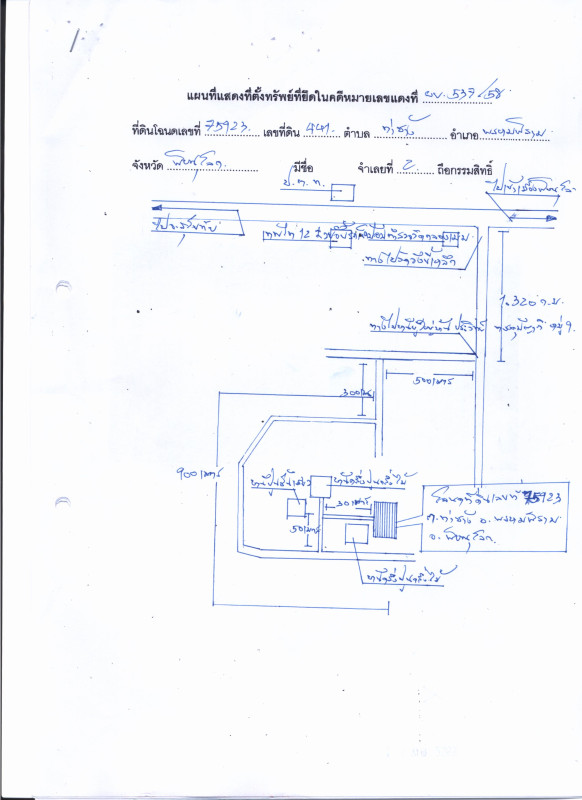 แผนที่แสดงที่ตั้งทรัพย์ที่ยึดในคดีหมายเลขแดงที่ ผบ. 537/58
ที่ดินโฉนดเลขที่ 75923 เลขที่ดิน 441 ตำบล ท่าช้าง อำเภอ พรหมพิราม
จังหวัด พิษณุโลก มีชื่อ จำเลยที่ 2 ถือกรรมสิทธิ์
ป.ต.ท.
ไปเข้าเมืองพิษณุโลก
ไปจ.สุโขทัย
1.320 ก.ม.
500 เมตร
300 เมตร
900 เมตร
บ้านปูนชั้นเดียว
บ้านครึ่งปูนครึ่งไม้
30 เมตร
50 เมตร
โฉนดที่ดินเลขที่ 75923
ต.ท่าช้าง อ.พรหมพิราม
จ.พิษณุโลก
บ้านครึ่งปูนครึ่งไม้